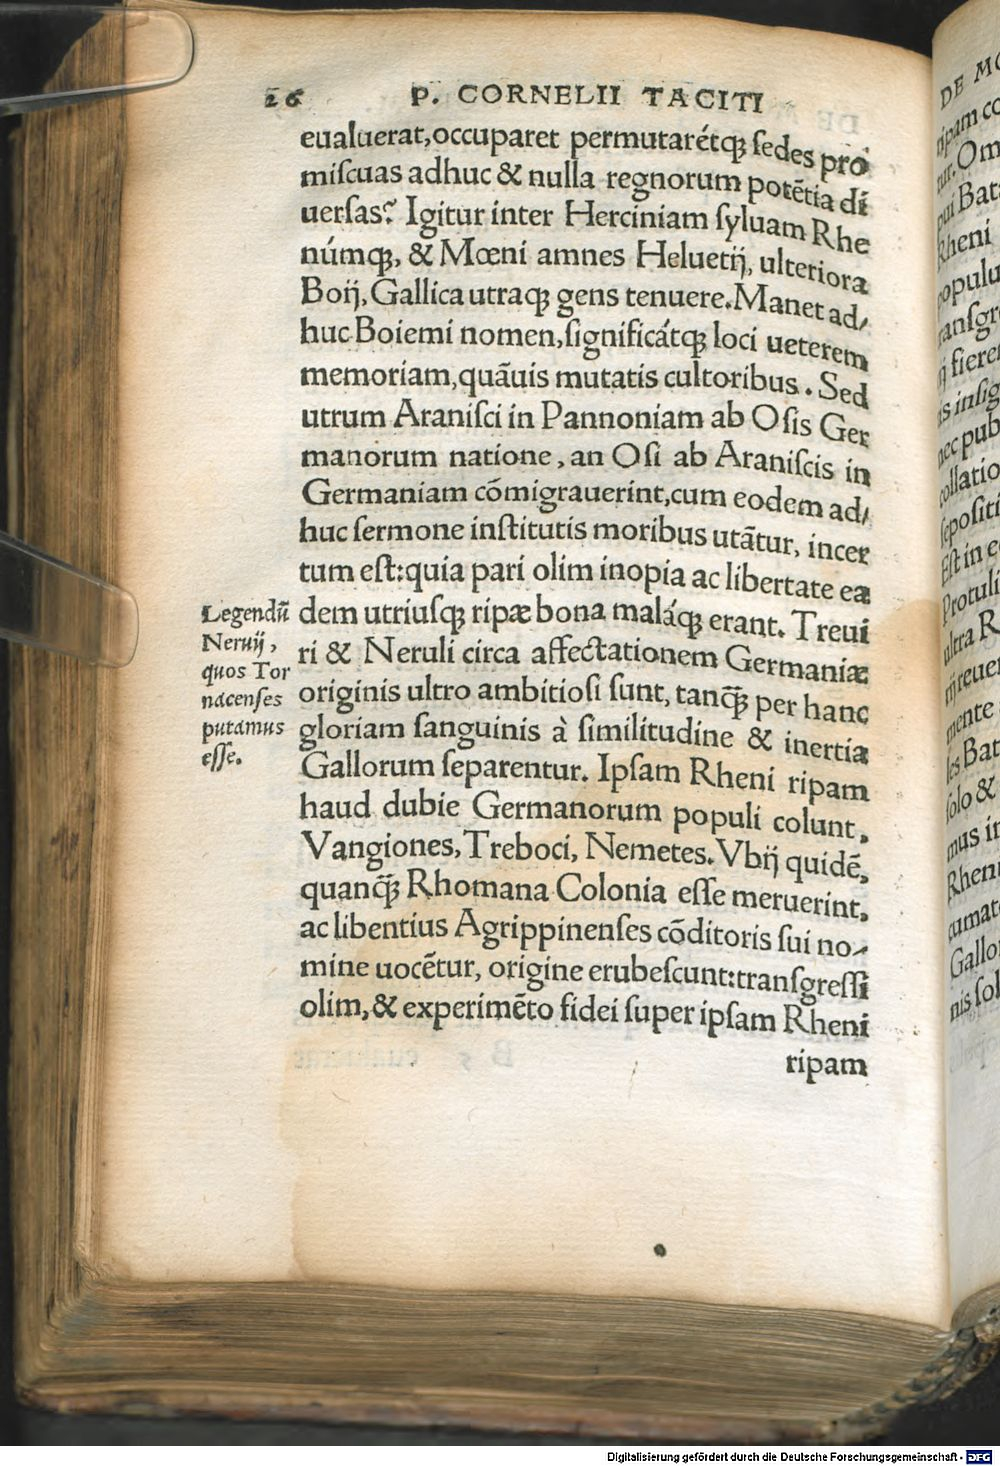 26 P. CORNELII TACITI
eualuerat,occuparet permutarétq́ꝫ ſedes pro
miſcuas adhuc & nulla regnorum potẽtia di
uerſas? Igitur inter Herciniam ſyluam Rhe
númqꝫ, & Mœni amnes Heluetij, ulteriora
Boij, Gallica utraqꝫ gens tenuere. Manet ad/
huc Boiemi nomen,ſignificátqꝫ loci ueterem
memoriam,quãuis mutatis cultoribus. Sed
utrum Araniſci in Pannoniam ab Oſis Ger
manorum natione, an Oſi ab Araniſcis in
Germaniam cõmigrauerint,cum eodem ad/
huc ſermone inſtitutis moribus utãtur, incer
tum eſt:quia pari olim inopia ac libertate ea
dem utriuſqꝫ ripæ bona maláqꝫ erant. Treui
ri & Neruli circa affectationem Germaniæ
originis ultro ambitioſi ſunt, tanq̃ꝫ per hanc
gloriam ſanguinis à ſimilitudine & inertia
Gallorum ſeparentur. Ipſam Rheni ripam
haud dubie Germanorum populi colunt,
Vangiones, Treboci, Nemetes. Vbij quidẽ,
quanq̃ꝫ Rhomana Colonia eſſe meruerint,
ac libentius Agrippinenſes cõditoris ſui no-
mine uocẽtur, origine erubeſcunt:tranſgreſſi
olim,& experimẽto fidei ſuper ipſam Rheni
ripam
Legendũ
Neruij,
quos Tor
nacenſes
putamus
eſſe.
DE MO
ripam co
tur. Om
pui Bat
Rheni
populu
ranſgre
ij fieret
is inſig
nec pub
collatio
ſepoſiti
Eſt in e
Protuli
ultra R
rij reuer
mente
les Bat
ſolo &
mus in
Rhenu
cumate
Gallo
nis ſol
Digitalisierung gefördert durch die Deutsche Forschungsgemeinschaft - DFG